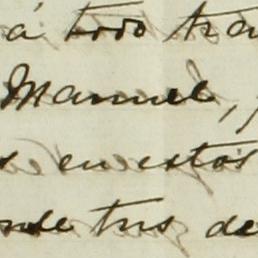 á todo tra
Manuel,
s en estos
nde tus de